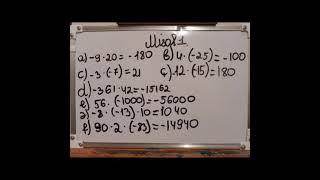 Misol 1.
a) -9·20=-180 b) 4·(-25)=-100
c) -3·(-7)=21 ç) 12·(-15)=180
d) -361·42=-15162
e) 56·(-1000)=-56000
ə) -8·(-13)·10=1040
f) 90·2·(-83)=-14940